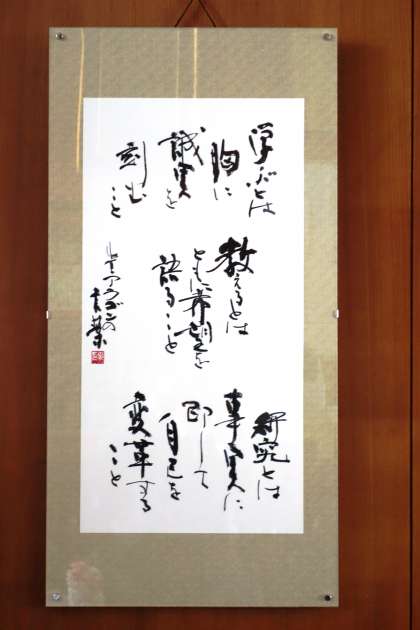 学ぶとは
胸に
誠実を
刻む
こと
教えるとは
ともに希望を
語ること
研究とは
事実に
即して
自己を
変革する
こと
ルイ・アラゴンの
言葉